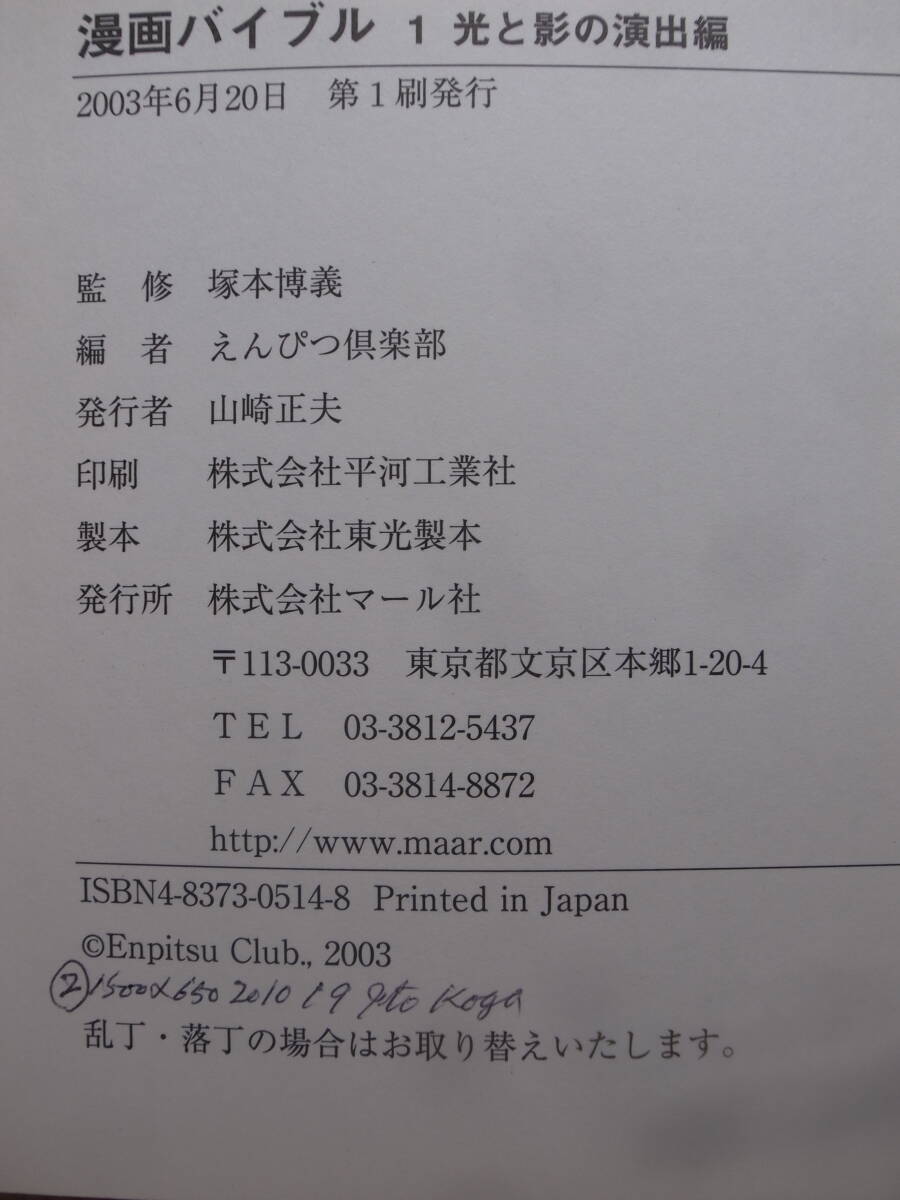 漫画バイブル 1 光と影の演出編
2003年6月20日　第1刷発行
監　修　塚本博義
編　者　えんぴつ倶楽部
発行者　山崎正夫
印刷　株式会社平河工業社
製本　株式会社東光製本
発行所　株式会社マール社
〒113-0033　東京都文京区本郷1-20-4
TEL　03-3812-5437
FAX　03-3814-8872
http://www.maar.com
ISBN4-8373-0514-8 Printed in Japan
©Enpitsu Club., 2003
② 650 2010 19 Koga
乱丁・落丁の場合はお取り替えいたします。